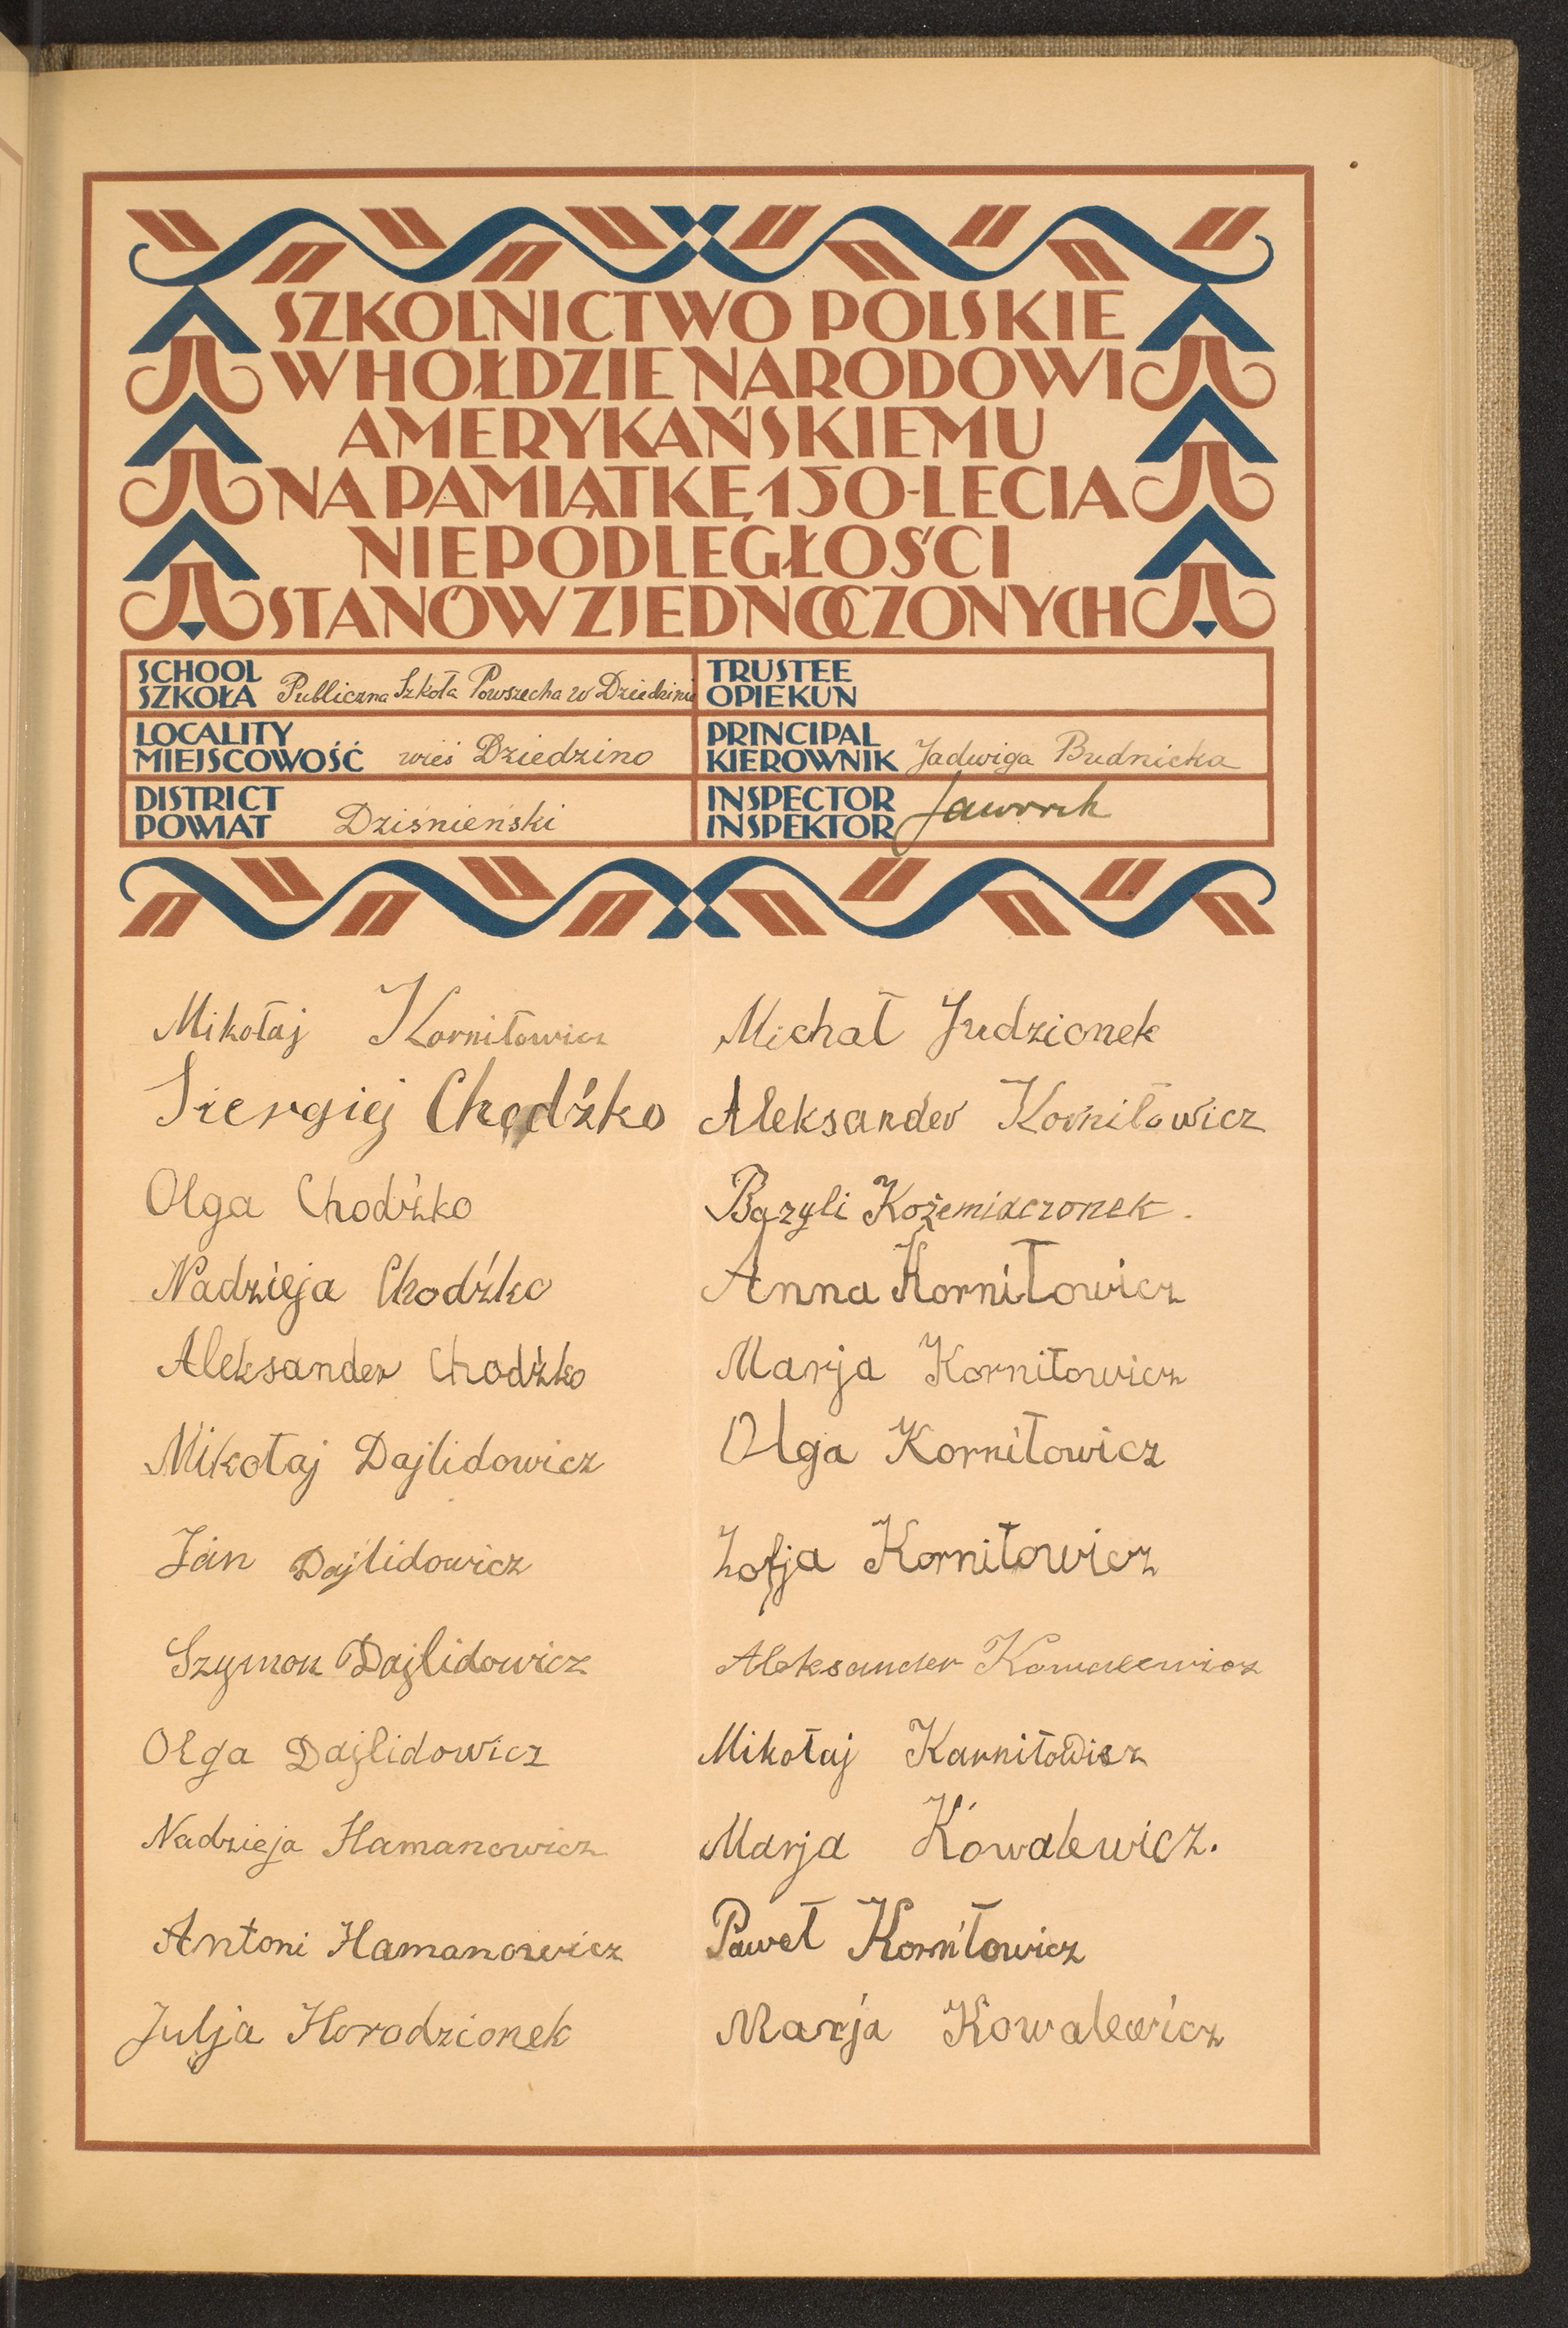 SZKOLNICTWO POLSKIE
W HOŁDZIE NARODOWI
AMERYKAŃSKIEMU
NA PAMIĄTKĘ 150-LECIA
NIEPODLEGŁOŚCI
STANÓW ZJEDNOCZONYCH
SCHOOL
SZKOŁA Publiczna Szkoła Powszecha w Dziedzinie
LOCALITY
MIEJSCOWOŚĆ wieś Dziedzino
DISTRICT
POWIAT Dziśnieński
TRUSTEE
OPIEKUN
PRINCIPAL
KIEROWNIK Jadwiga Budnicka
INSPECTOR
INSPEKTOR
Mikołaj Korniłowicz
Siergiej Chodźko
Olga Chodźko
Nadzieja Chodźko
Aleksander Chodźko
Mikołaj Dajlidowicz
Jan Dajlidowicz
Szymon Dajlidowicz
Olga Dajlidowicz
Nadzieja Hamanowicz
Antoni Hamanowicz
Julja Horodzionek
Michał Judzionek
Aleksander Korniłowicz
Bazyli Koziemiaczonek.
Anna Korniłowicz
Marja Korniłowicz
Olga Korniłowicz
Zofja Korniłowicz
Aleksander Kowalewicz
Mikołaj Karniłowicz
Marja Kowalewicz.
Paweł Korniłowicz
Marja Kowalewicz